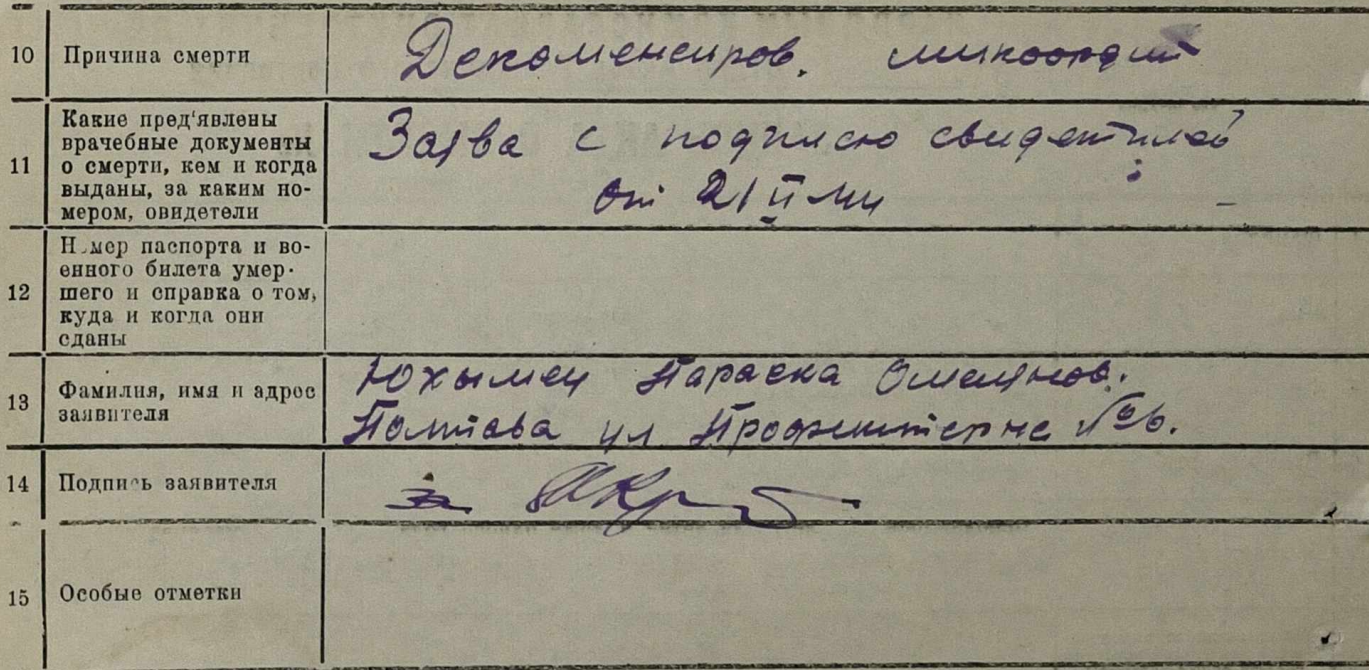 10 Причина смерти
Декоменсиров. миокардит
11 Какие пред'явлены
врачебные документы
о смерти, кем и когда
выданы, за каким но-
мером, свидетели
Заява с подписю свидетилей
от 21 II
12 Номер паспорта и во-
енного билета умер-
шего и справка о том,
куда и когда они
сданы
13 Фамилия, имя и адрес
заявителя
Юхымец Параска Омелянов.
Полтава ул Профинтерна №26.
14 Подпись заявителя
за
15 Особые отметки